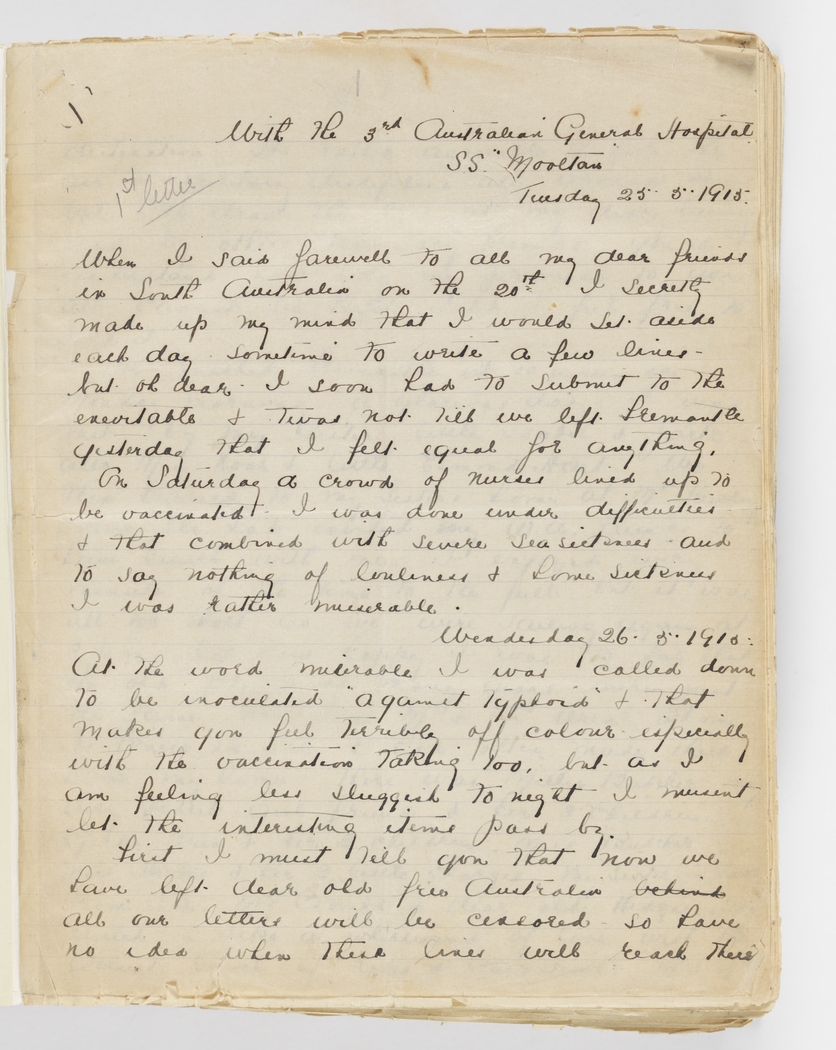 1
With the 3rd Australian General Hospital
SS. "Mooltan
Tuesday 25. 5. 1915.
1st letter
When I said farewell to all my dear friends
in South Australia on the 20th I secretly
made up my mind that I would set aside
each day sometime to write a few lines -
but oh dear. I soon had to submit to the
enevitable & twas not till we left Fremantle
yesterday that I felt equal for anything.
On Saturday a crowd of nurses lined up to
be vaccinated. I was done under difficulties
& that combined with severe seasickness and
to say nothing of lonliness & home sickness
I was rather miserable.
Wendesday 26. 5. 1915.
At the word miserable I was called down
to be inoculated "against typhoid" & that
makes you feel terribly off colour especially
with the vaccination taking too, but as I
am feeling less sluggish to night I musn't
let the interesting items pass by.
First I must tell you that now we
have left dear old free Australia behind
all our letters will be censored so have
no idea when these lines will reach there